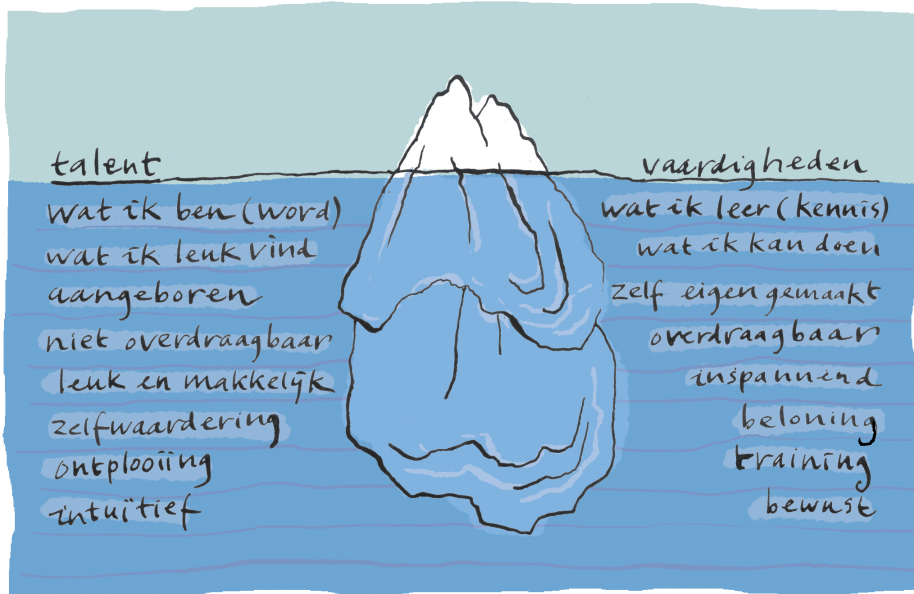 talent
wat ik ben (word)
wat ik leuk vind
aangeboren
niet overdraagbaar
leuk en makkelijk
zelfwaardering
ontplooiing
intuïtief
vaardigheden
wat ik leer (kennis)
wat ik kan doen
zelf eigen gemaakt
overdraagbaar
inspannend
beloning
training
bewust